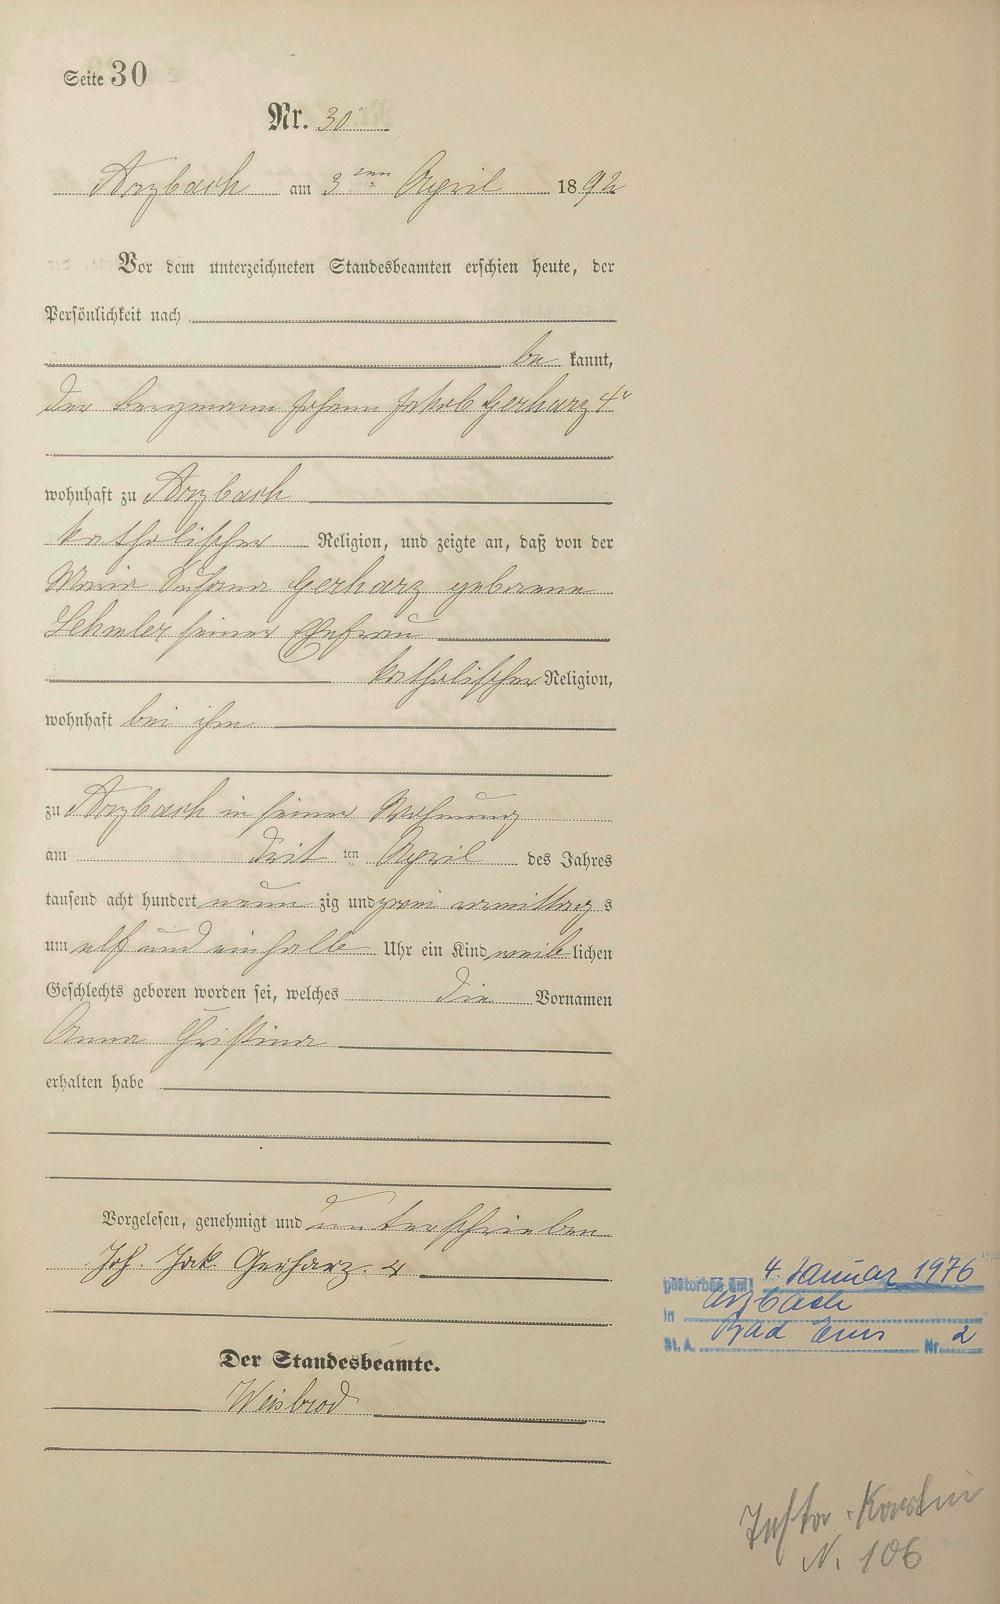 Seite 30
Nr. 30
Arzbach am 3ten April 1892
Vor dem unterzeichneten Standesbeamten erschien heute, der
Persönlichkeit nach
be kannt,
der Bergmann Johann Jakob Gerharz 4r
wohnhaft zu Arzbach
katholischer Religion, und zeigte an, daß von der
Maria Susana Gerharz geborene
Lehmler seiner Ehefrau
katholischer Religion,
wohnhaft bei ihm
zu Arzbach in seiner Wohnung
am drit ten April des Jahres
tausend acht hundert neun zig und zwei vormittag s
um elf und einhalb Uhr ein Kind weib lichen
Geschlechts geboren worden sei, welches die Vornamen
Anna Christina
erhalten habe
Vorgelesen, genehmigt und unterschrieben
Joh. Jak. Gerharz. 4
Der Standesbeamte.
Weisbrod
gestorben am: 4. Januar 1976
in Arzbach
St. A. Bad Ems Nr. 2
N. 106